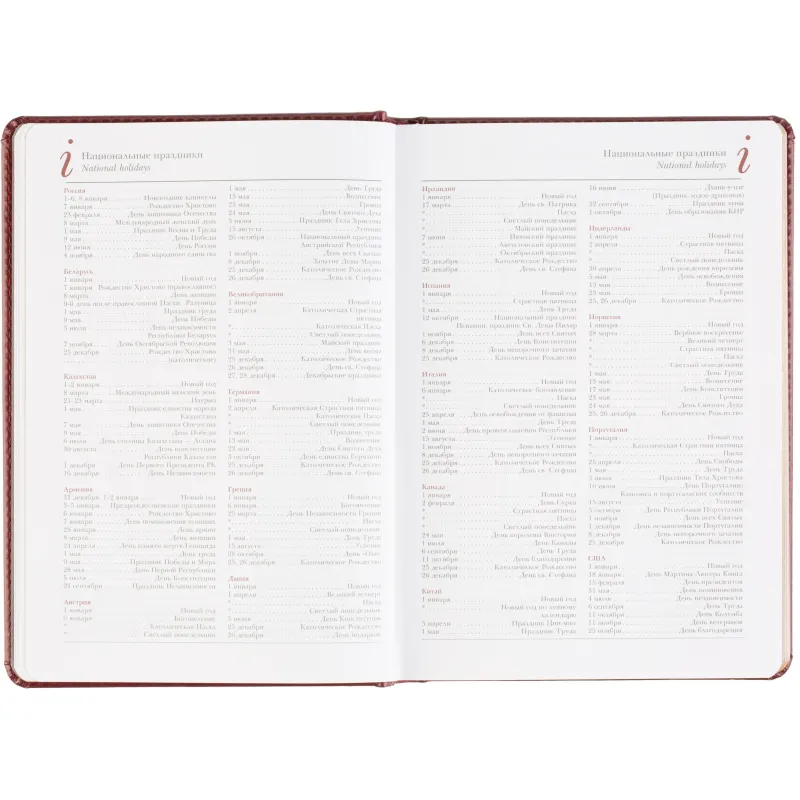 Национальные праздники
National holidays
Россия
1-6, 8 января Новогодние каникулы
7 января Рождество Христово
23 февраля День защитника Отечества
8 марта Международный женский день
1 мая Праздник Весны и Труда
9 мая День Победы
12 июня День России
4 ноября День народного единства
Беларусь
1 января Новый год
7 января Рождество Христово (православное)
8 марта День женщин
9-й день после православной Пасхи Радуница
1 мая Праздник труда
9 мая День Победы
3 июля День независимости
Республики Беларусь
7 ноября День Октябрьской Революции
25 декабря Рождество Христово
(католическое)
Казахстан
1-2 января Новый год
8 марта Международный женский день
21-23 марта Наурыз
1 мая Праздник единства народа
Казахстана
7 мая День защитника Отечества
9 мая День Победы
6 июля День столицы Казахстана — Астаны
30 августа День конституции
Республики Казахстан
1 декабря День Первого Президента РК
16 декабря День Независимости
Армения
31 декабря, 1-2 января Новый год
3-5 января Предрождественские праздники
6 января Рождество Христово
7 января День поминовения усопших
28 января День армии
8 марта День женщин
24 апреля День памяти жертв Геноцида
1 мая День труда
9 мая Праздник Победы и Мира
28 мая День Первой Республики
5 июля День Конституции
21 сентября Праздник Независимости
Австрия
1 января Новый год
6 января Богоявление
* Католическая Пасха
* Светлый понедельник
1 мая День Труда
13 мая Вознесение
23 мая Троица
24 мая День Святого Духа
3 июня Праздник Тела Христова
15 августа Успение
26 октября Национальный праздник
Австрийской Республики
1 ноября День всех Святых
8 декабря Зачатие Девы Марии
25 декабря Католическое Рождество
26 декабря День св. Стефана
Великобритания
1 января Новый год
2 апреля Католическая Страстная
пятница
* Католическая Пасха
* Светлый понедельник
3 мая Майский праздник
31 мая День весны
25 декабря Католическое Рождество
26 декабря День св. Стефана
27, 28 декабря Декабрьские праздники
Германия
1 января Новый год
2 апреля Католическая Страстная пятница
* Католическая Пасха
* Светлый понедельник
1 мая Праздник труда
13 мая Вознесение
23 мая День Святого Духа
3 октября День единства Германии
25 декабря Католическое Рождество
26 декабря День св. Стефана
Греция
1 января Новый год
6 января Богоявление
25 марта День Независимости Греции
* Пасха
* Светлый понедельник
1 мая День Труда
15 августа Успение
28 октября День «Охи»
25, 26 декабря Католическое Рождество
Дания
1 января Новый год
1 апреля Великий четверг
* Пасха
* Светлый понедельник
5 июня День Конституции
25 декабря Католическое Рождество
26 декабря День подарков
Национальные праздники
National holidays
Ирландия
1 января Новый год
17 марта День св. Патрика
* Пасха
* Светлый понедельник
* Майский праздник
7 июня Июньский праздник
* Августовский праздник
* Октябрьский праздник
25 декабря Католическое Рождество
26 декабря День св. Стефана
Испания
1 января Новый год
* Страстная пятница
1 мая День Труда
12 октября Национальный праздник
Испании, праздник Св. Девы Пилар
1 ноября День всех Святых
6 декабря День Конституции
8 декабря День непорочного зачатия
25 декабря Католическое Рождество
Италия
1 января Новый год
6 января Католическое богоявление
* Пасха
* Светлый понедельник
25 апреля День освобождения от фашизма
1 мая День Труда
2 июня День провозглашения Республики
15 августа Успение
1 ноября День всех Святых
8 декабря День непорочного зачатия
25 декабря Католическое Рождество
26 декабря День св. Стефана
Канада
1 января Новый год
2 февраля День Сурка
* Страстная пятница
* Пасха
* Светлый понедельник
24 мая День королевы Виктории
1 июля День Канады
6 сентября День Труда
11 октября День благодарения
25 декабря Католическое Рождество
26 декабря День св. Стефана
Китай
1 января Новый год
* Новый год по лунному
календарю
5 апреля Праздник Цинмин
1 мая Праздник Труда
16 июня Дуань-у-цзе
(Праздник лодок-драконов)
22 сентября Праздник луны
1 октября День образования КНР
Нидерланды
1 января Новый год
2 апреля Страстная пятница
* Пасха
* Светлый понедельник
30 апреля День рождения королевы
5 мая День освобождения
13 мая Вознесение
23 мая Троица
25, 26 декабря Католическое Рождество
Норвегия
1 января Новый год
28 марта Вербное воскресенье
* Великий четверг
* Страстная пятница
* Пасха
* Светлый понедельник
1 мая День Труда
13 мая Вознесение
17 мая День Конституции
23 мая Троица
24 мая День Святого Духа
25, 26 декабря Католическое Рождество
Португалия
1 января Новый год
* Католическая Страстная пятница
* Пасха
25 апреля День Свободы
1 мая День Труда
3 июня Праздник Тела Христова
10 июня День Португалии,
Камоэнса и португальских сообществ
15 августа Успение
5 октября День Республики Португалии
1 ноября День всех Святых
1 декабря День независимости Португалии
8 декабря День непорочного зачатия
25 декабря Католическое Рождество
США
1 января Новый год
18 января День Мартина Лютера Кинга
15 февраля День президентов
31 мая День поминовения
4 июля День независимости
6 сентября День Труда
11 октября День Колумба
11 ноября День ветеранов
25 ноября День благодарения